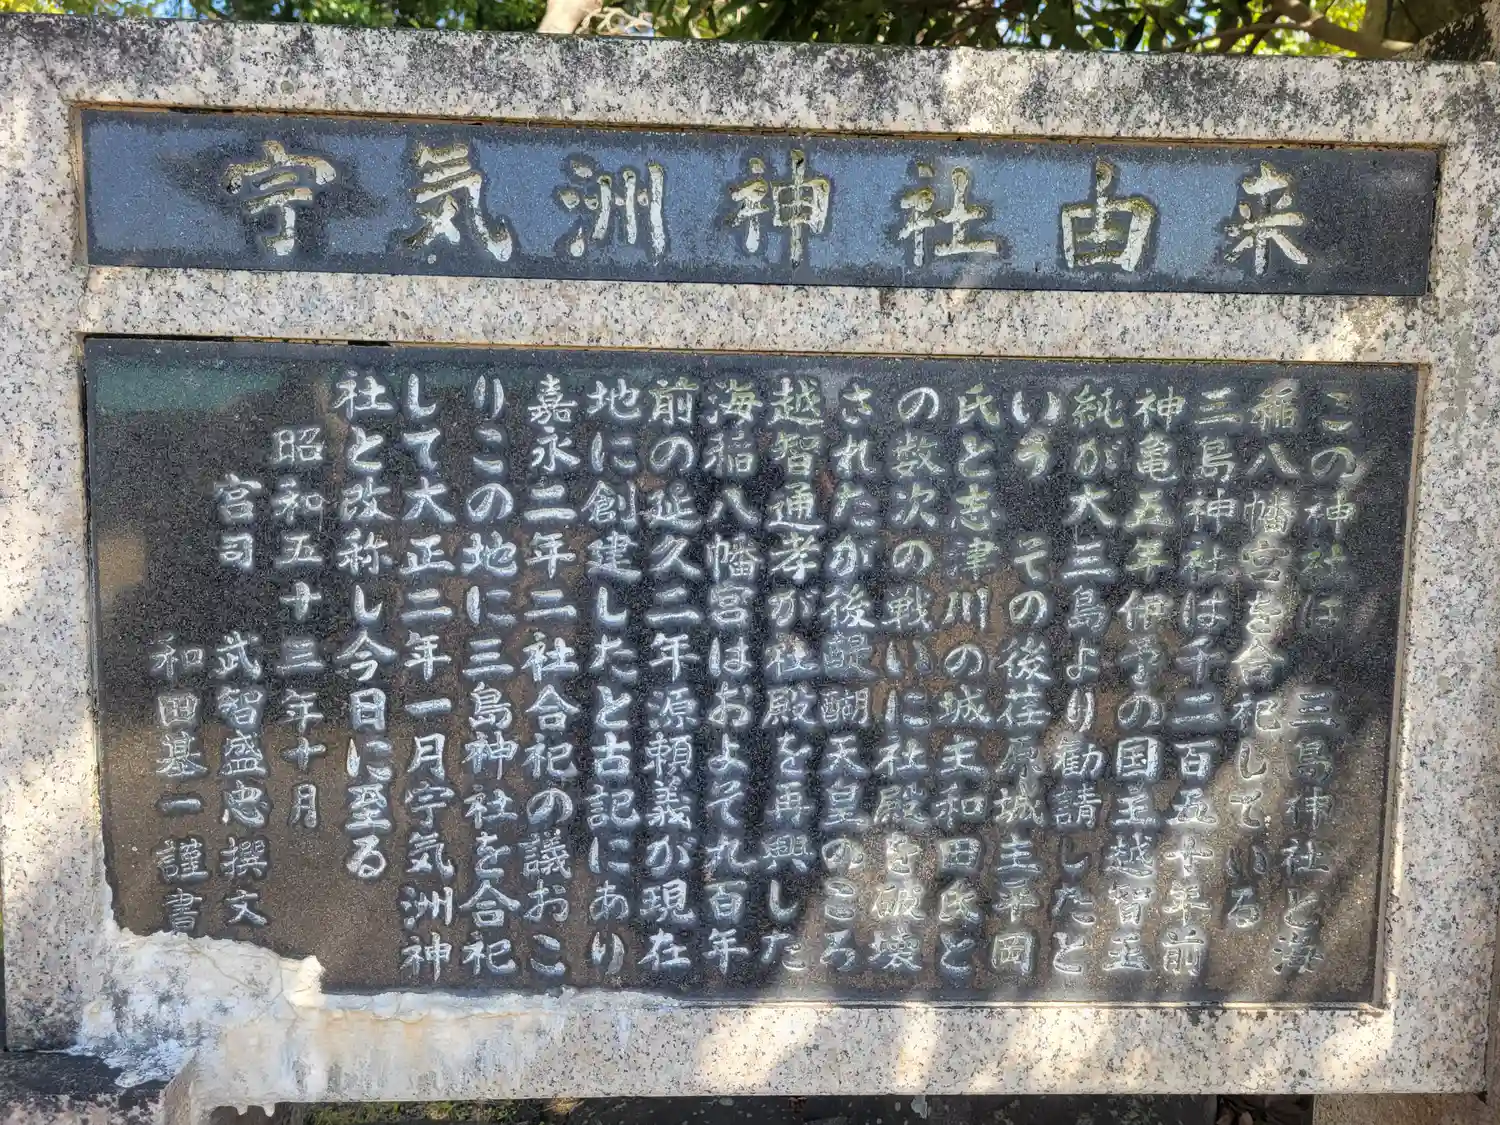 宇気洲神社由来
この神社は 三島神社と海
稲八幡宮を合祀している
三島神社は千二百五十年前
神亀五年伊予の国主越智玉
純が大三島より勧請したと
いう その後荏原城主平岡
氏と志津川の城主和田氏と
の数次の戦いに社殿を破壊
されたが後醍醐天皇のころ
越智通孝が社殿を再興した
海稲八幡宮はおよそ九百年
前の延久二年源頼義が現在
地に創建したと古記にあり
嘉永二年二社合祀の議おこ
りこの地に三島神社を合祀
して大正二年一月宇気洲神
社と改称し今日に至る
昭和五十三年十月
宮司 武智盛忠撰文
和田基一謹書